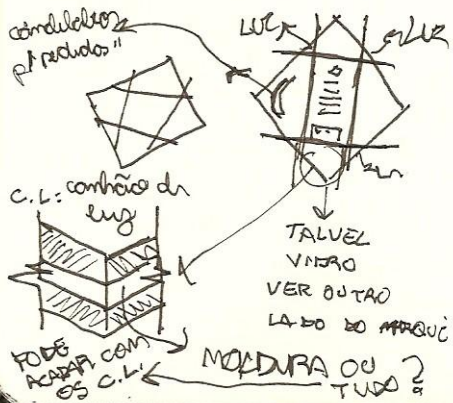 candelabros
p/ "perdidos"
LUZ
LUZ
C.L: canhão de
luz
TALVEZ
VIDRO
VER OUTRO
LADO DO
PODE
ACABAR COM
OS C.L.
MOLDURA OU
TUDO?